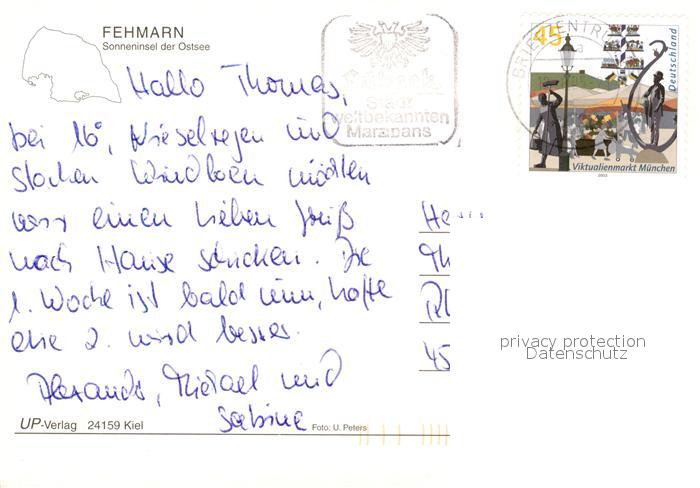 FEHMARN
Sonneninsel der Ostsee
Hallo Thomas,
bei 16°, Nieselregen und
starken Windböen möchten
wir einen lieben Gruß
nach Hause schicken. Die
1. Woche ist bald rum, hoffe
die 2. wird besser.
Alexandra, Michael und
Sabine
UP-Verlag 24159 Kiel
Foto: U. Peters
Stadt
weltbekannten
Marzipans
BRIEFZENTRUM
45
Deutschland
Viktualienmarkt München
2003
He
Th
45
privacy protection
Datenschutz